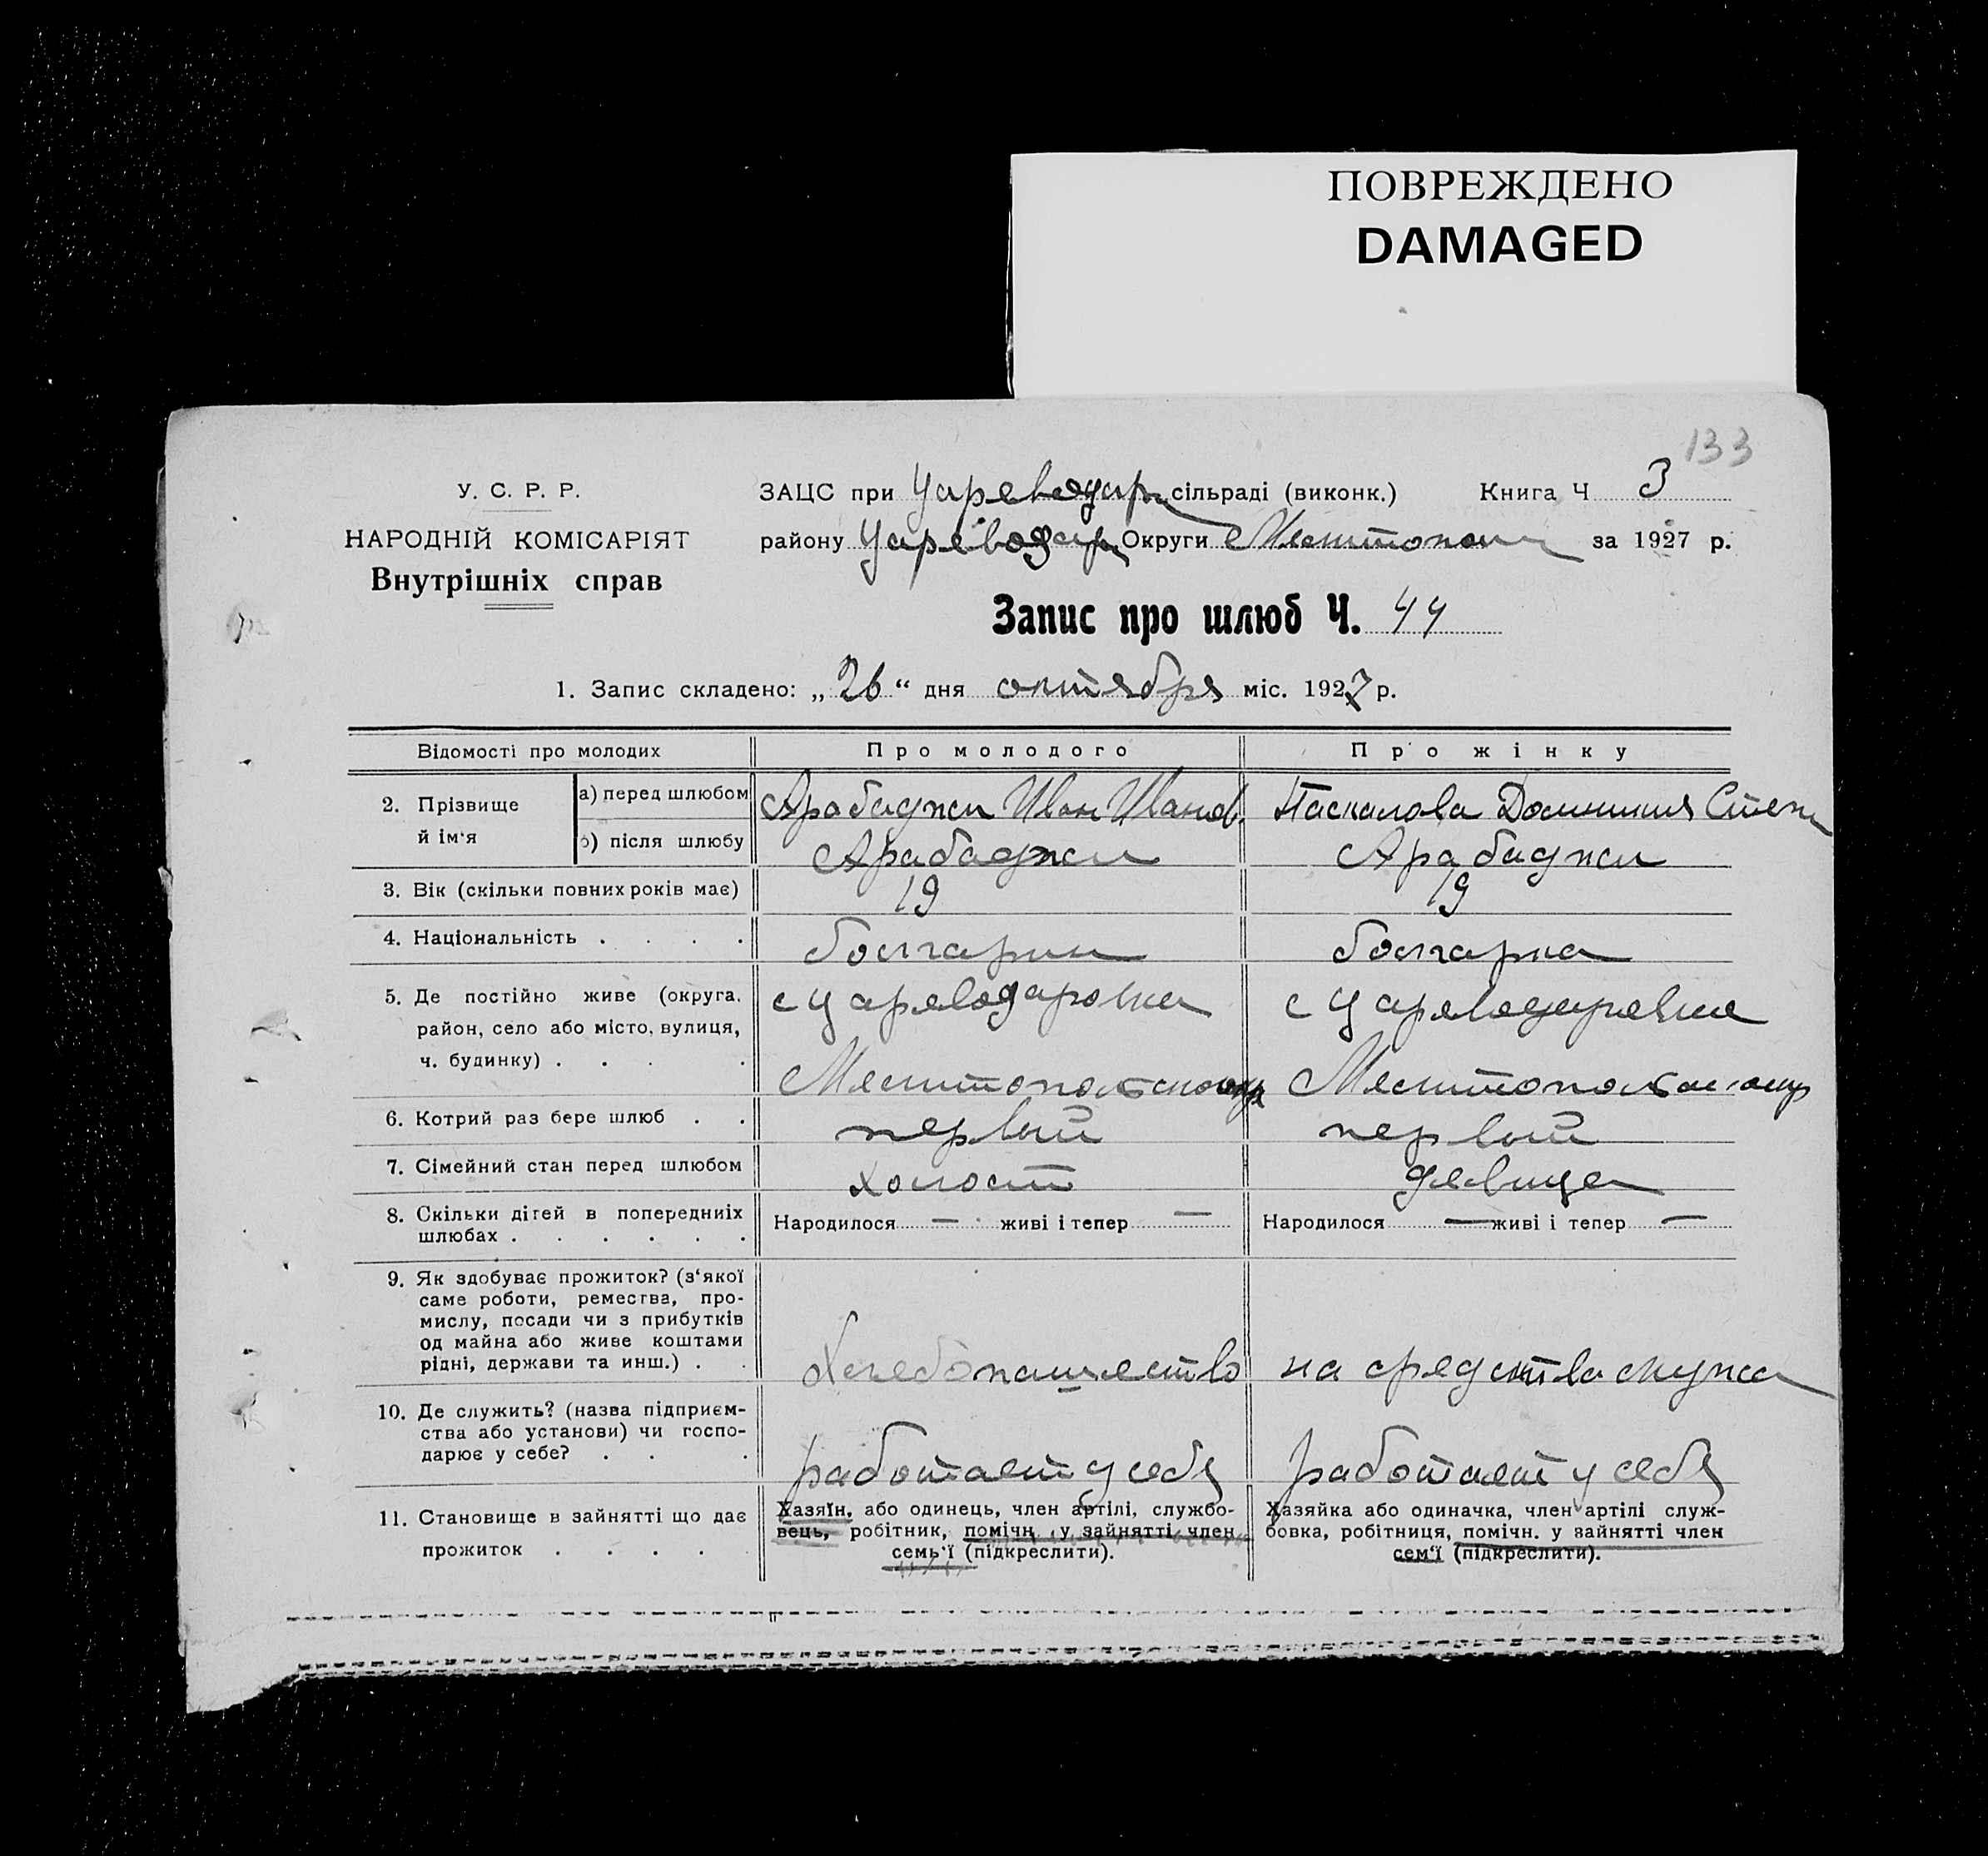 ПОВРЕЖДЕНО
DAMAGED
133
У. С. Р. Р.
НАРОДНІЙ КОМІСАРІЯТ
Внутрішніх справ
ЗАЦС при Цареводар сільраді (виконк.) Книга Ч 3
району Цареводар Округи Мелитопол за 1927 р.
Запис про шлюб Ч. 44
1. Запис складено: „26“ дня октября міс. 1927 р.
Відомості про молодих Про молодого Про жінку
2. Прізвище й ім‘я а) перед шлюбом Арабаджи Иван Иванов. Паскалова Домникия Степ
б) після шлюбу Арабаджи Арабаджи
3. Вік (скільки повних років має) 19 19
4. Національність . . . . болгарин болгарка
5. Де постійно живе (округа, с Цареводаровка с Цареводаровка
район, село або місто, вулиця,
ч. будинку) . . . . Мелитопольского окр Мелитопольск окр
6. Котрий раз бере шлюб . . первый первый
7. Сімейний стан перед шлюбом холост девица
8. Скільки дітей в попередниіх Народилося — живі і тепер — Народилося — живі і тепер —
шлюбах . . . . . .
9. Як здобуває прожиток? (з‘якої
саме роботи, ремества, про-
мислу, посади чи з прибутків
од майна або живе коштами
рідні, держави та инш.) . . Хлебопашество на средства мужа
10. Де служить? (назва підприєм-
ства або установи) чи госпо-
дарює у себе? . . . работает у себя работает у себя
11. Становище в зайнятті що дає
прожиток . . . .
Хазяїн, або одинець, член артілі, службо-
вець, робітник, помічн. у зайнятті член
семь‘ї (підкреслити).
Хазяйка або одиначка, член артілі служ-
бовка, робітниця, помічн. у зайнятті член
сем‘ї (підкреслити).